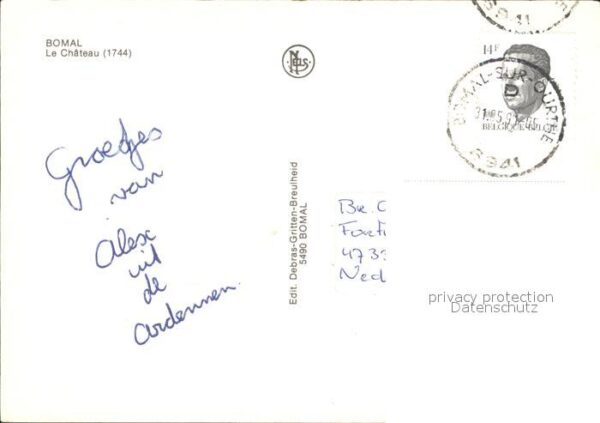 BOMAL
Le Château (1744)
Groetjes
van
Alex
uit
de
Ardennen.
Edit. Debras-Gritten-Breulheid
5490 BOMAL
14F
BELGIQUE-BELGIE
BOMAL-SUR-OURTHE
D
6941
6941
Br.
Ned
privacy protection
Datenschutz